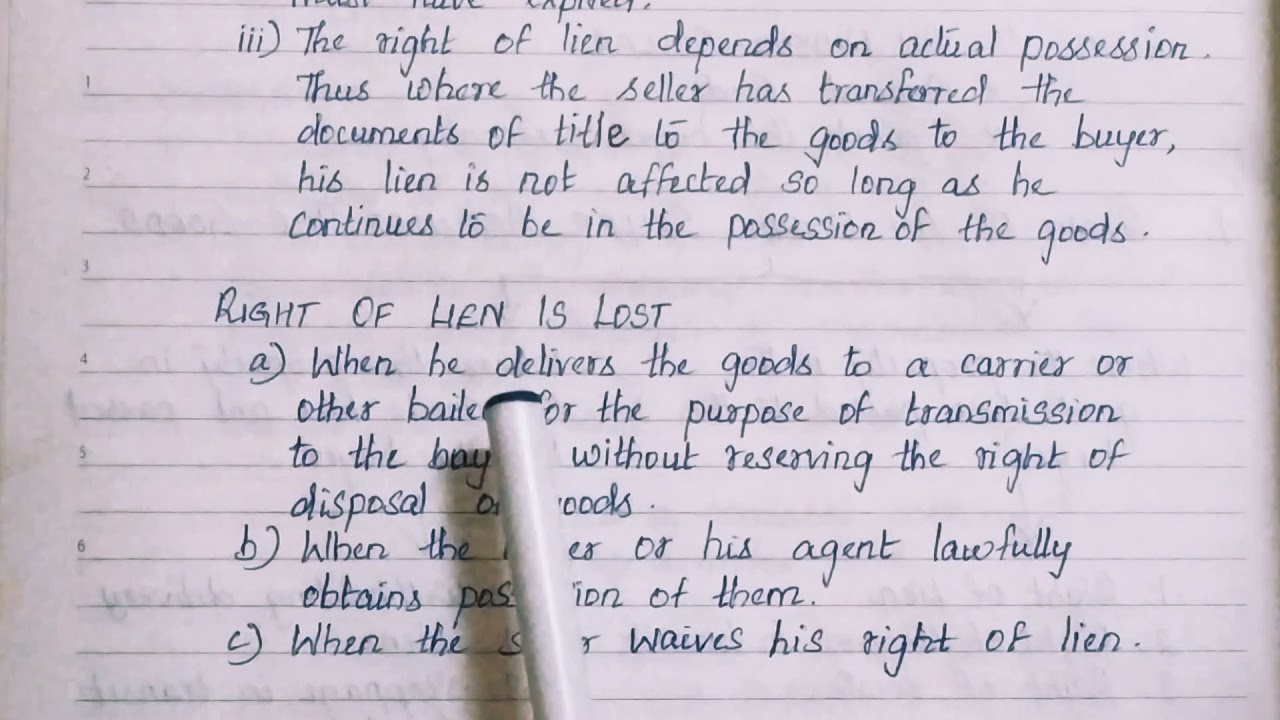 iii) The right of lien depends on actual possession.
Thus where the seller has transferred the
documents of title to the goods to the buyer,
his lien is not affected so long as he
continues to be in the possession of the goods.
RIGHT OF LIEN IS LOST
a) When he delivers the goods to a carrier or
other for the purpose of transmission
to the without reserving the right of
disposal
b) When the or his agent lawfully
obtains of them.
c) When the waives his right of lien.
1
2
3
4
5
6